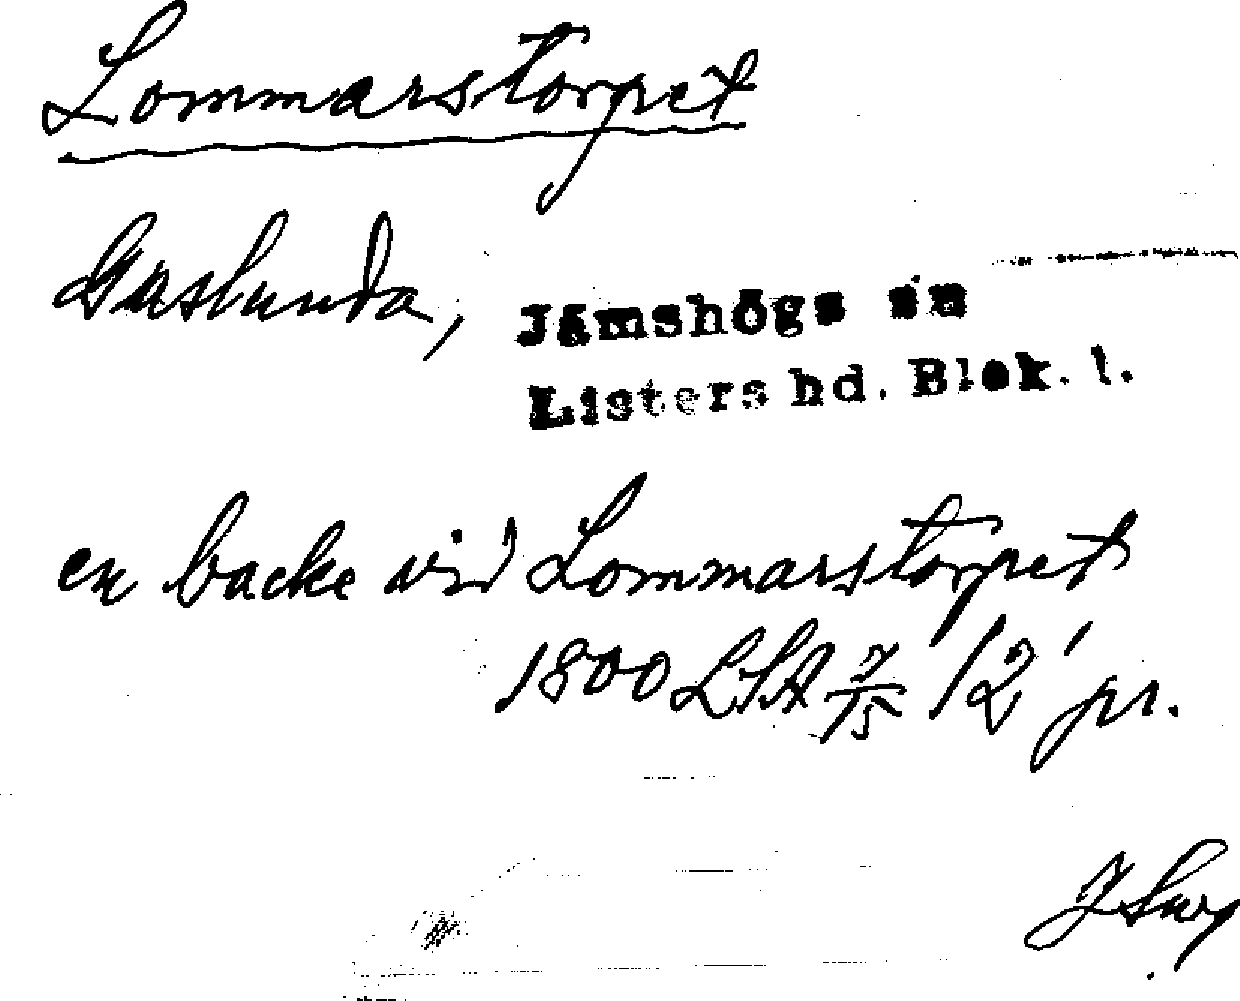 Lommarstorpet
Gaslunda,
Jämshögs sn
Listers hd. Blek. l.
en backe vid Lommarstorpet
1800 LSA 7/15 12' pr.